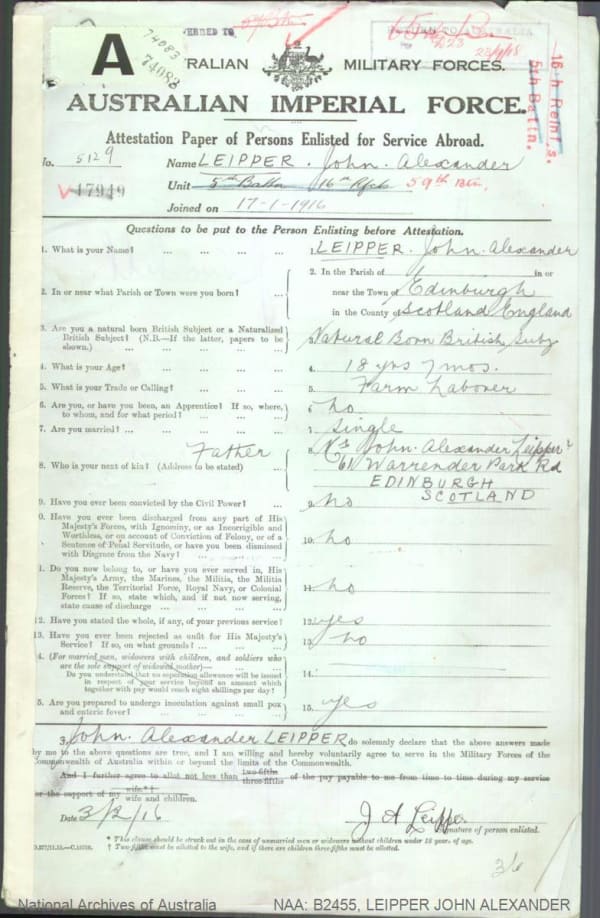 74083
74083
A
RALIAN MILITARY FORCES.
AUSTRALIAN IMPERIAL FORCE.
16th Reinf.s.
5th Battn.
Attestation Paper of Persons Enlisted for Service Abroad.
No. 5129 Name LEIPPER. John. Alexander
17949 Unit 5th Battn 16th Rfcts 59th Btn.
Joined on 17-1-1916
Questions to be put to the Person Enlisting before Attestation.
1. What is your Name? ... ... ... ... 1. LEIPPER. John. Alexander
2. In or near what Parish or Town were you born? ... 2. In the Parish of in or
near the Town of Edinburgh
in the County of Scotland England
3. Are you a natural born British Subject or a Naturalized
British Subject? (N.B.—If the latter, papers to be
shown.) ... ... ... ... 3. Natural Born British Subj
4. What is your Age? ... ... ... ... 4. 18 yrs 7 mos.
5. What is your Trade or Calling? ... ... ... 5. Farm Laborer
6. Are you, or have you been, an Apprentice? If so, where,
to whom, and for what period? ... ... ... 6 no
7. Are you married? ... ... ... ... 7. Single
Father
8. Who is your next of kin? (Address to be stated) ... 8. John. Alexander Leipper
61 Warrender Park Rd
EDINBURGH
SCOTLAND
9. Have you ever been convicted by the Civil Power? ... 9. no
0. Have you ever been discharged from any part of His
Majesty's Forces, with Ignominy, or as Incorrigible and
Worthless, or on account of Conviction of Felony, or of a
Sentence of Penal Servitude, or have you been dismissed
with Disgrace from the Navy? ... ... ... 10. no
1. Do you now belong to, or have you ever served in, His
Majesty's Army, the Marines, the Militia, the Militia
Reserve, the Territorial Force, Royal Navy, or Colonial
Forces? If so, state which, and if not now serving,
state cause of discharge ... ... ... 11. no
12. Have you stated the whole, if any, of your previous service? 12. yes
13. Have you ever been rejected as unfit for His Majesty's
Service? If so, on what grounds? ... ... 13 no
4. (For married men, widowers with children, and soldiers who
are the sole support of widowed mother)—
Do you understand that no separation allowance will be issued
in respect of your service beyond an amount which
together with pay would reach eight shillings per day? 14.
5. Are you prepared to undergo inoculation against small pox
and enteric fever? ... ... ... ... 15. yes
John. Alexander LEIPPER do solemnly declare that the above answers made
by me to the above questions are true, and I am willing and hereby voluntarily agree to serve in the Military Forces of the
Commonwealth of Australia within or beyond the limits of the Commonwealth.
And I further agree to allot not less than two-fifths three-fifths of the pay payable to me from time to time during my service
for the support of my wife.*† wife and children.
Date 3/2/16 J A Leipper
Signature of person enlisted.
* This clause should be struck out in the case of unmarried men or widowers without children under 18 years of age.
† Two-fifths must be allotted to the wife, and if there are children three-fifths must be allotted.
36
National Archives of Australia NAA: B2455, LEIPPER JOHN ALEXANDER